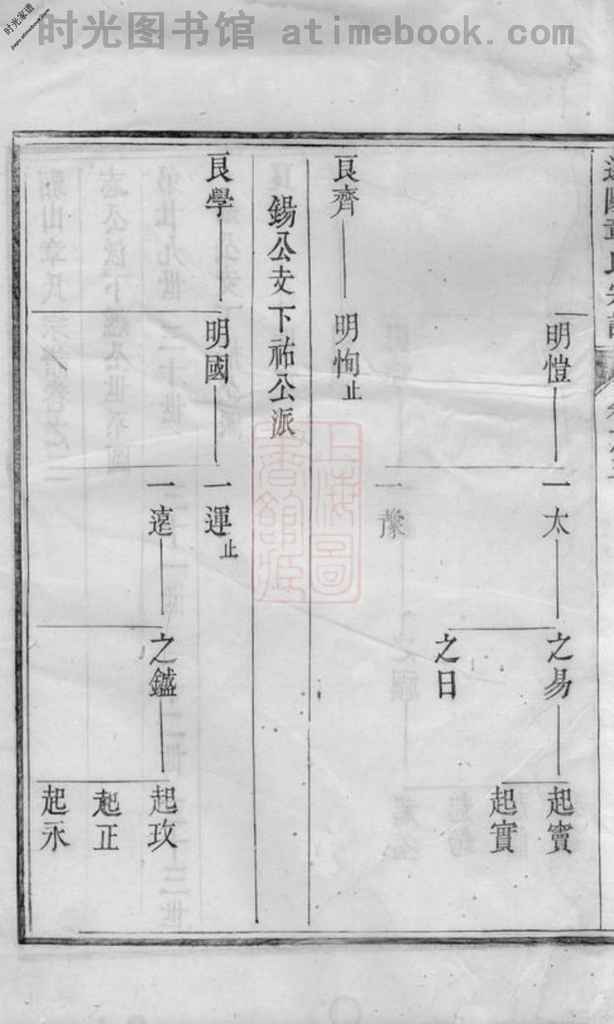 时光图书馆 atimebook.com
时光家谱
明愷
一太
之易
起賓
起實
之日
一豫
良齊
明恂止
鍚公支下祐公派
良學
明國
一運止
一遠
之鑑
起玫
起正
起永
上海圖書館藏